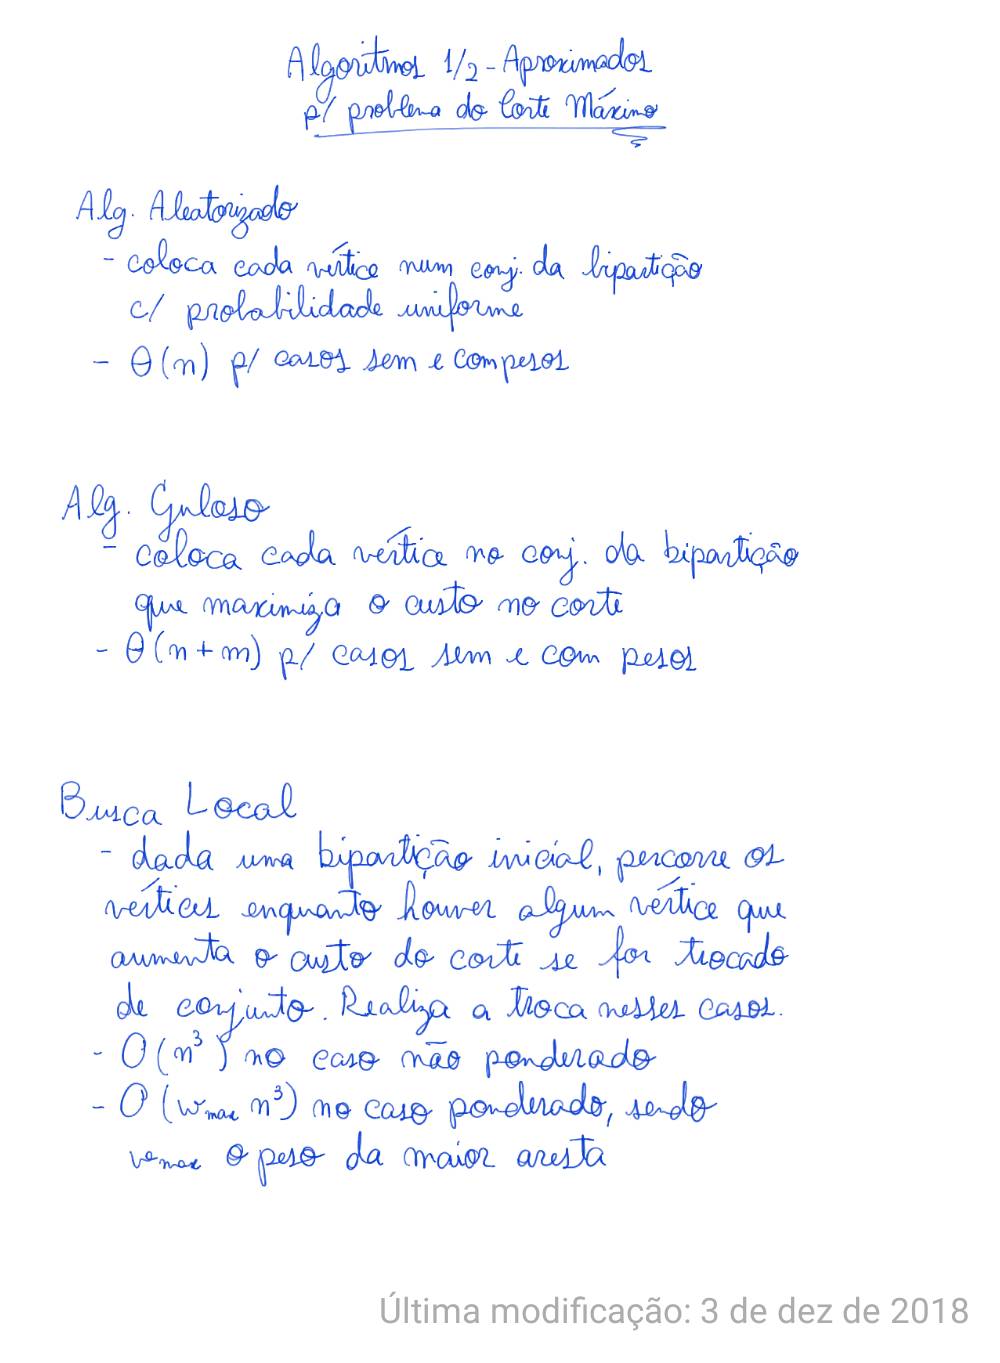 Algoritmos 1/2-Aproximados
p/ problema do Corte Máximo
Alg. Aleatorizado
- coloca cada vértice num conj. da bipartição
c/ probabilidade uniforme
- Θ(n) p/ casos sem e com pesos
Alg. Guloso
- coloca cada vértice no conj. da bipartição
que maximiza o custo no corte
- Θ(n+m) p/ casos sem e com pesos
Busca Local
- dada uma bipartição inicial, percorre os
vértices enquanto houver algum vértice que
aumenta o custo do corte se for trocado
de conjunto. Realiza a troca nesses casos.
- O(n³) no caso não ponderado
- O(wmax n³) no caso ponderado, sendo
wmax o peso da maior aresta
Última modificação: 3 de dez de 2018